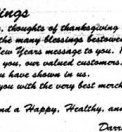 ings
, thoughts of thanksgiving
the many blessings bestowe
New Years message to you.
you, our valued customers.
you have shown in us.
you with the very best merch
nd a Happy, Healthy, an
Darr